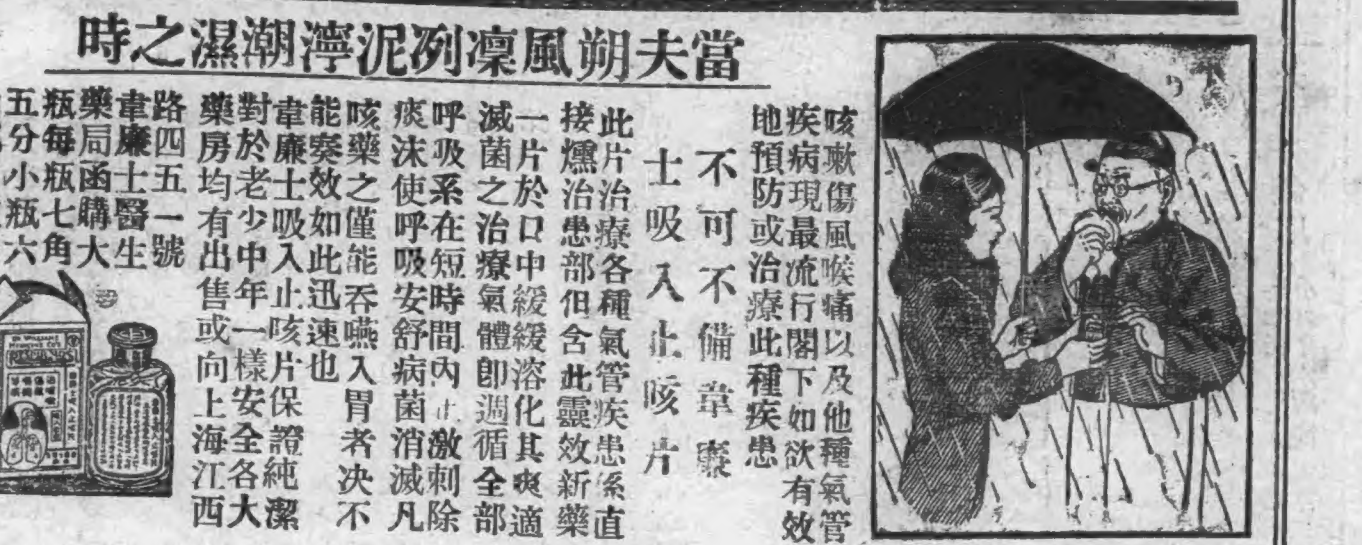 當夫朔風凜冽泥濘潮濕之時
咳嗽傷風喉痛以及他種氣管
疾病現最流行閣下如欲有效
地預防或治療此種疾患
不可不備韋廉
士吸入止咳片
此片治療各種氣管疾患係直
接燻治患部但含此靈效新藥
一片於口中緩緩溶化其爽適
滅菌之治療氣體即週循全部
呼吸系在短時間內止激刺除
痰沫使呼吸安舒病菌消滅凡
咳藥之僅能吞嚥入胃者决不
能奏效如此迅速也
韋廉士吸入止咳片保證純潔
對於老少中年一樣安全各大
藥房均有出售或向上海江西
路四五一號
韋廉士醫生
藥局函購大
瓶每瓶七角
五分小瓶六
DR WILLIAMS